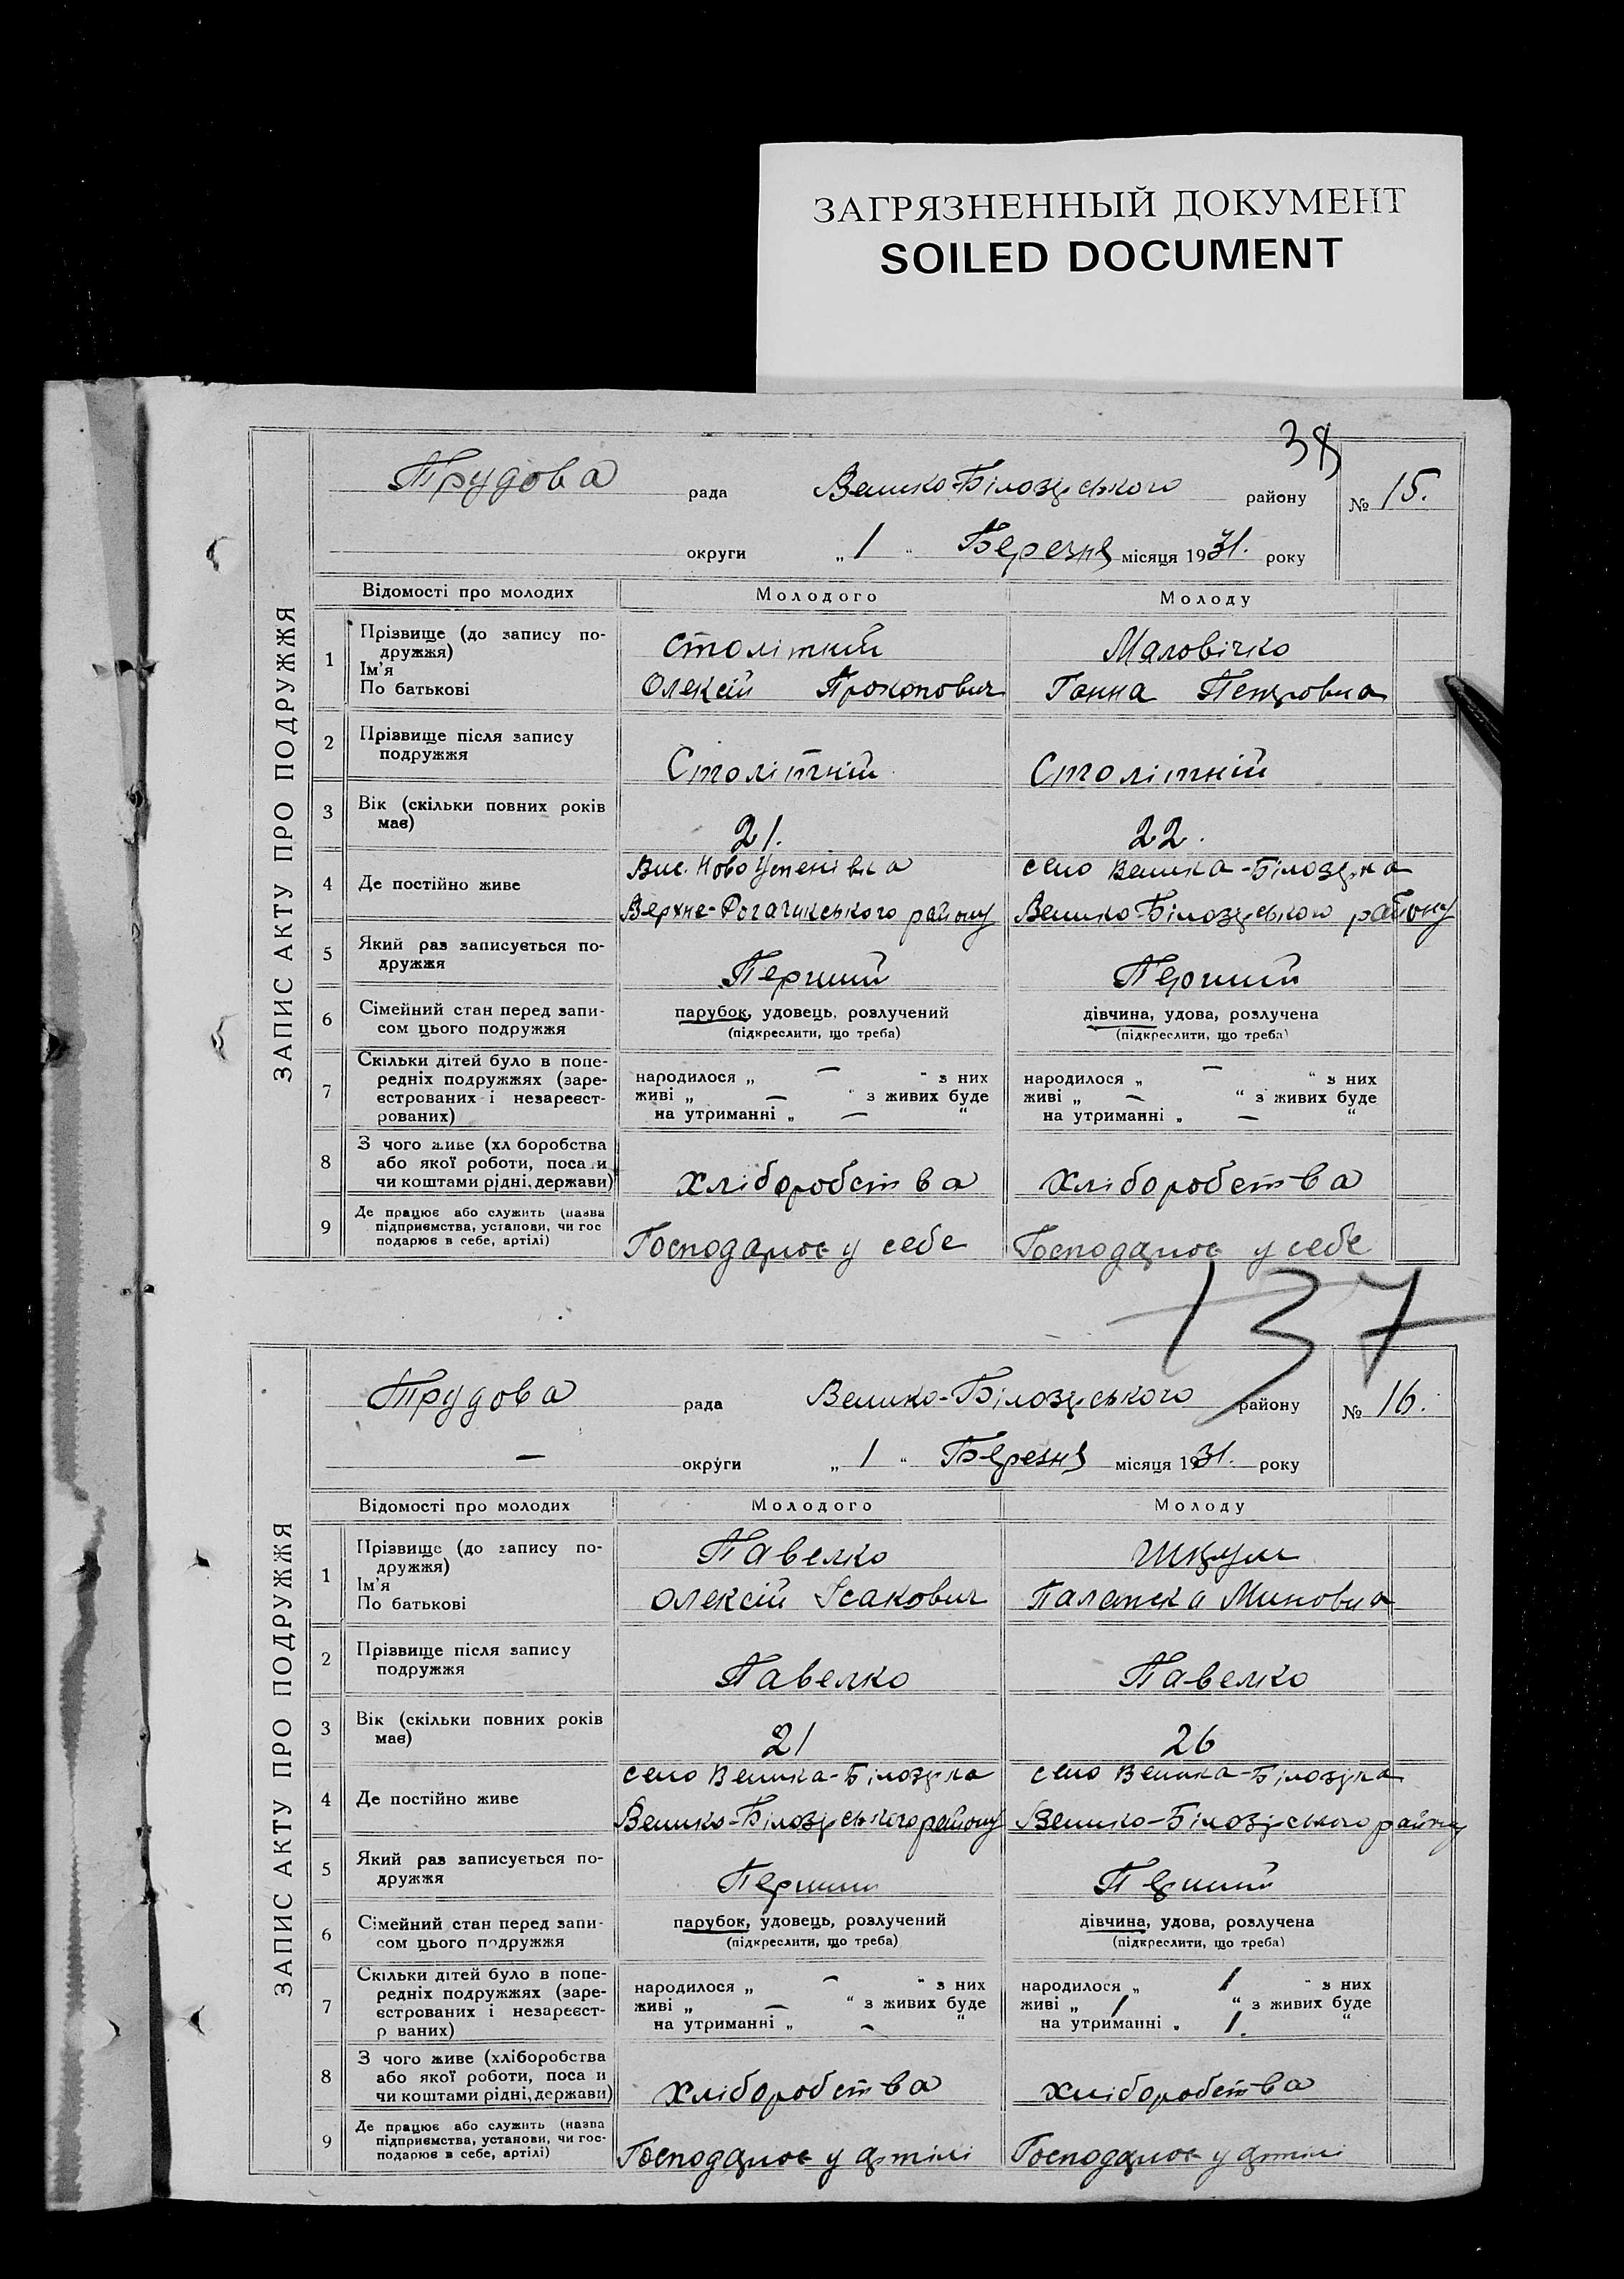 ЗАГРЯЗНЕННЫЙ ДОКУМЕНТ
SOILED DOCUMENT
38
ЗАПИС АКТУ ПРО ПОДРУЖЖЯ
Трудова рада Велико-Білозерського району № 15.
округи „ 1 " Березня місяця 1931. року
Відомості про молодих Молодого Молоду
1 Прізвище (до запису по- Столітний Маловічко
дружжя)
Ім'я
По батькові Олексій Прокопович Ганна Петровна
2 Прізвище після запису
подружжя Столітній Столітній
3 Вік (скільки повних років
має) 21. 22.
Вис. Ново Успенівка село Велика-Білозерка
4 Де постійно живе
Верхне-Рогачикського району Велико-Білозерського району
5 Який раз записується по-
дружжя Перший Перший
6 Сімейний стан перед запи- парубок, удовець, розлучений дівчина, удова, розлучена
сом цього подружжя (підкреслити, що треба) (підкреслити, що треба)
7 Скільки дітей було в попе-
редніх подружжях (заре- народилося „ — " з них народилося „ — " з них
єстрованих і незареєст- живі „ — " з живих буде живі „ — " з живих буде
рованих) на утриманні „ — " на утриманні „ — "
8 З чого живе (хл боробства
або якої роботи, поса и
чи коштами рідні, держави) хліборобства хліборобства
9 Де працює або служить (назва
підприємства, установи, чи гос
подарює в себе, артілі) Господарює у себе Господарює у себе
137
ЗАПИС АКТУ ПРО ПОДРУЖЖЯ
Трудова рада Велико-Білозерського району № 16.
— округи „ 1 " Березня місяця 1931. року
Відомості про молодих Молодого Молоду
1 Прізвище (до запису по- Павелко
дружжя)
Ім'я
По батькові Олексій Ісакович Миновна
2 Прізвище після запису
подружжя Павелко Павелко
3 Вік (скільки повних років
має) 21 26
село Велика-Білозерка село Велика-Білозерка
4 Де постійно живе
Велико-Білозерського району Велико-Білозерського району
5 Який раз записується по-
дружжя Перший Перший
6 Сімейний стан перед запи- парубок, удовець, розлучений дівчина, удова, розлучена
сом цього подружжя (підкреслити, що треба) (підкреслити, що треба)
7 Скільки дітей було в попе-
редніх подружжях (заре- народилося „ — " з них народилося „ 1 " з них
єстрованих і незареєст- живі „ — " з живих буде живі „ 1 " з живих буде
р ваних) на утриманні „ — " на утриманні „ 1. "
8 З чого живе (хліборобства
або якої роботи, поса и
чи коштами рідні, держави) хліборобства хліборобства
9 Де працює або служить (назва
підприємства, установи, чи гос-
подарює в себе, артілі) Господарює у артілі Господарює у артілі